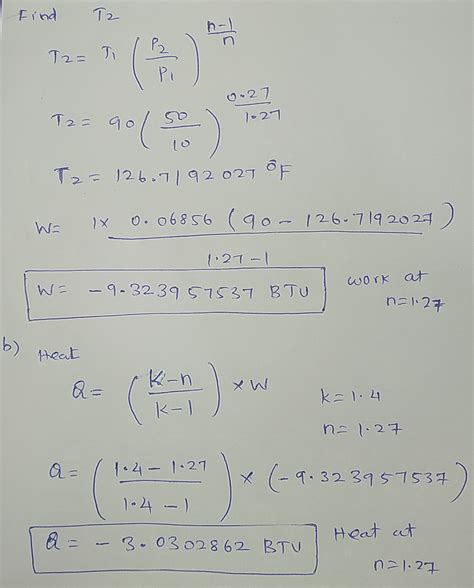 Find T2
T2 = T1 (P2/P1)^(n-1/n)
T2 = 90 (50/10)^(0.27/1.27)
T2 = 126.7192027 °F
W = 1x 0.06856 (90 - 126.7192027) / 1.27 - 1
W = -9.323957537 BTU work at n=1.27
b) Heat
Q = (K-n/k-1) x W k = 1.4
n = 1.27
Q = (1.4 - 1.27/1.4 - 1) x (-9.323957537)
Q = -3.0302862 BTU Heat at n=1.27